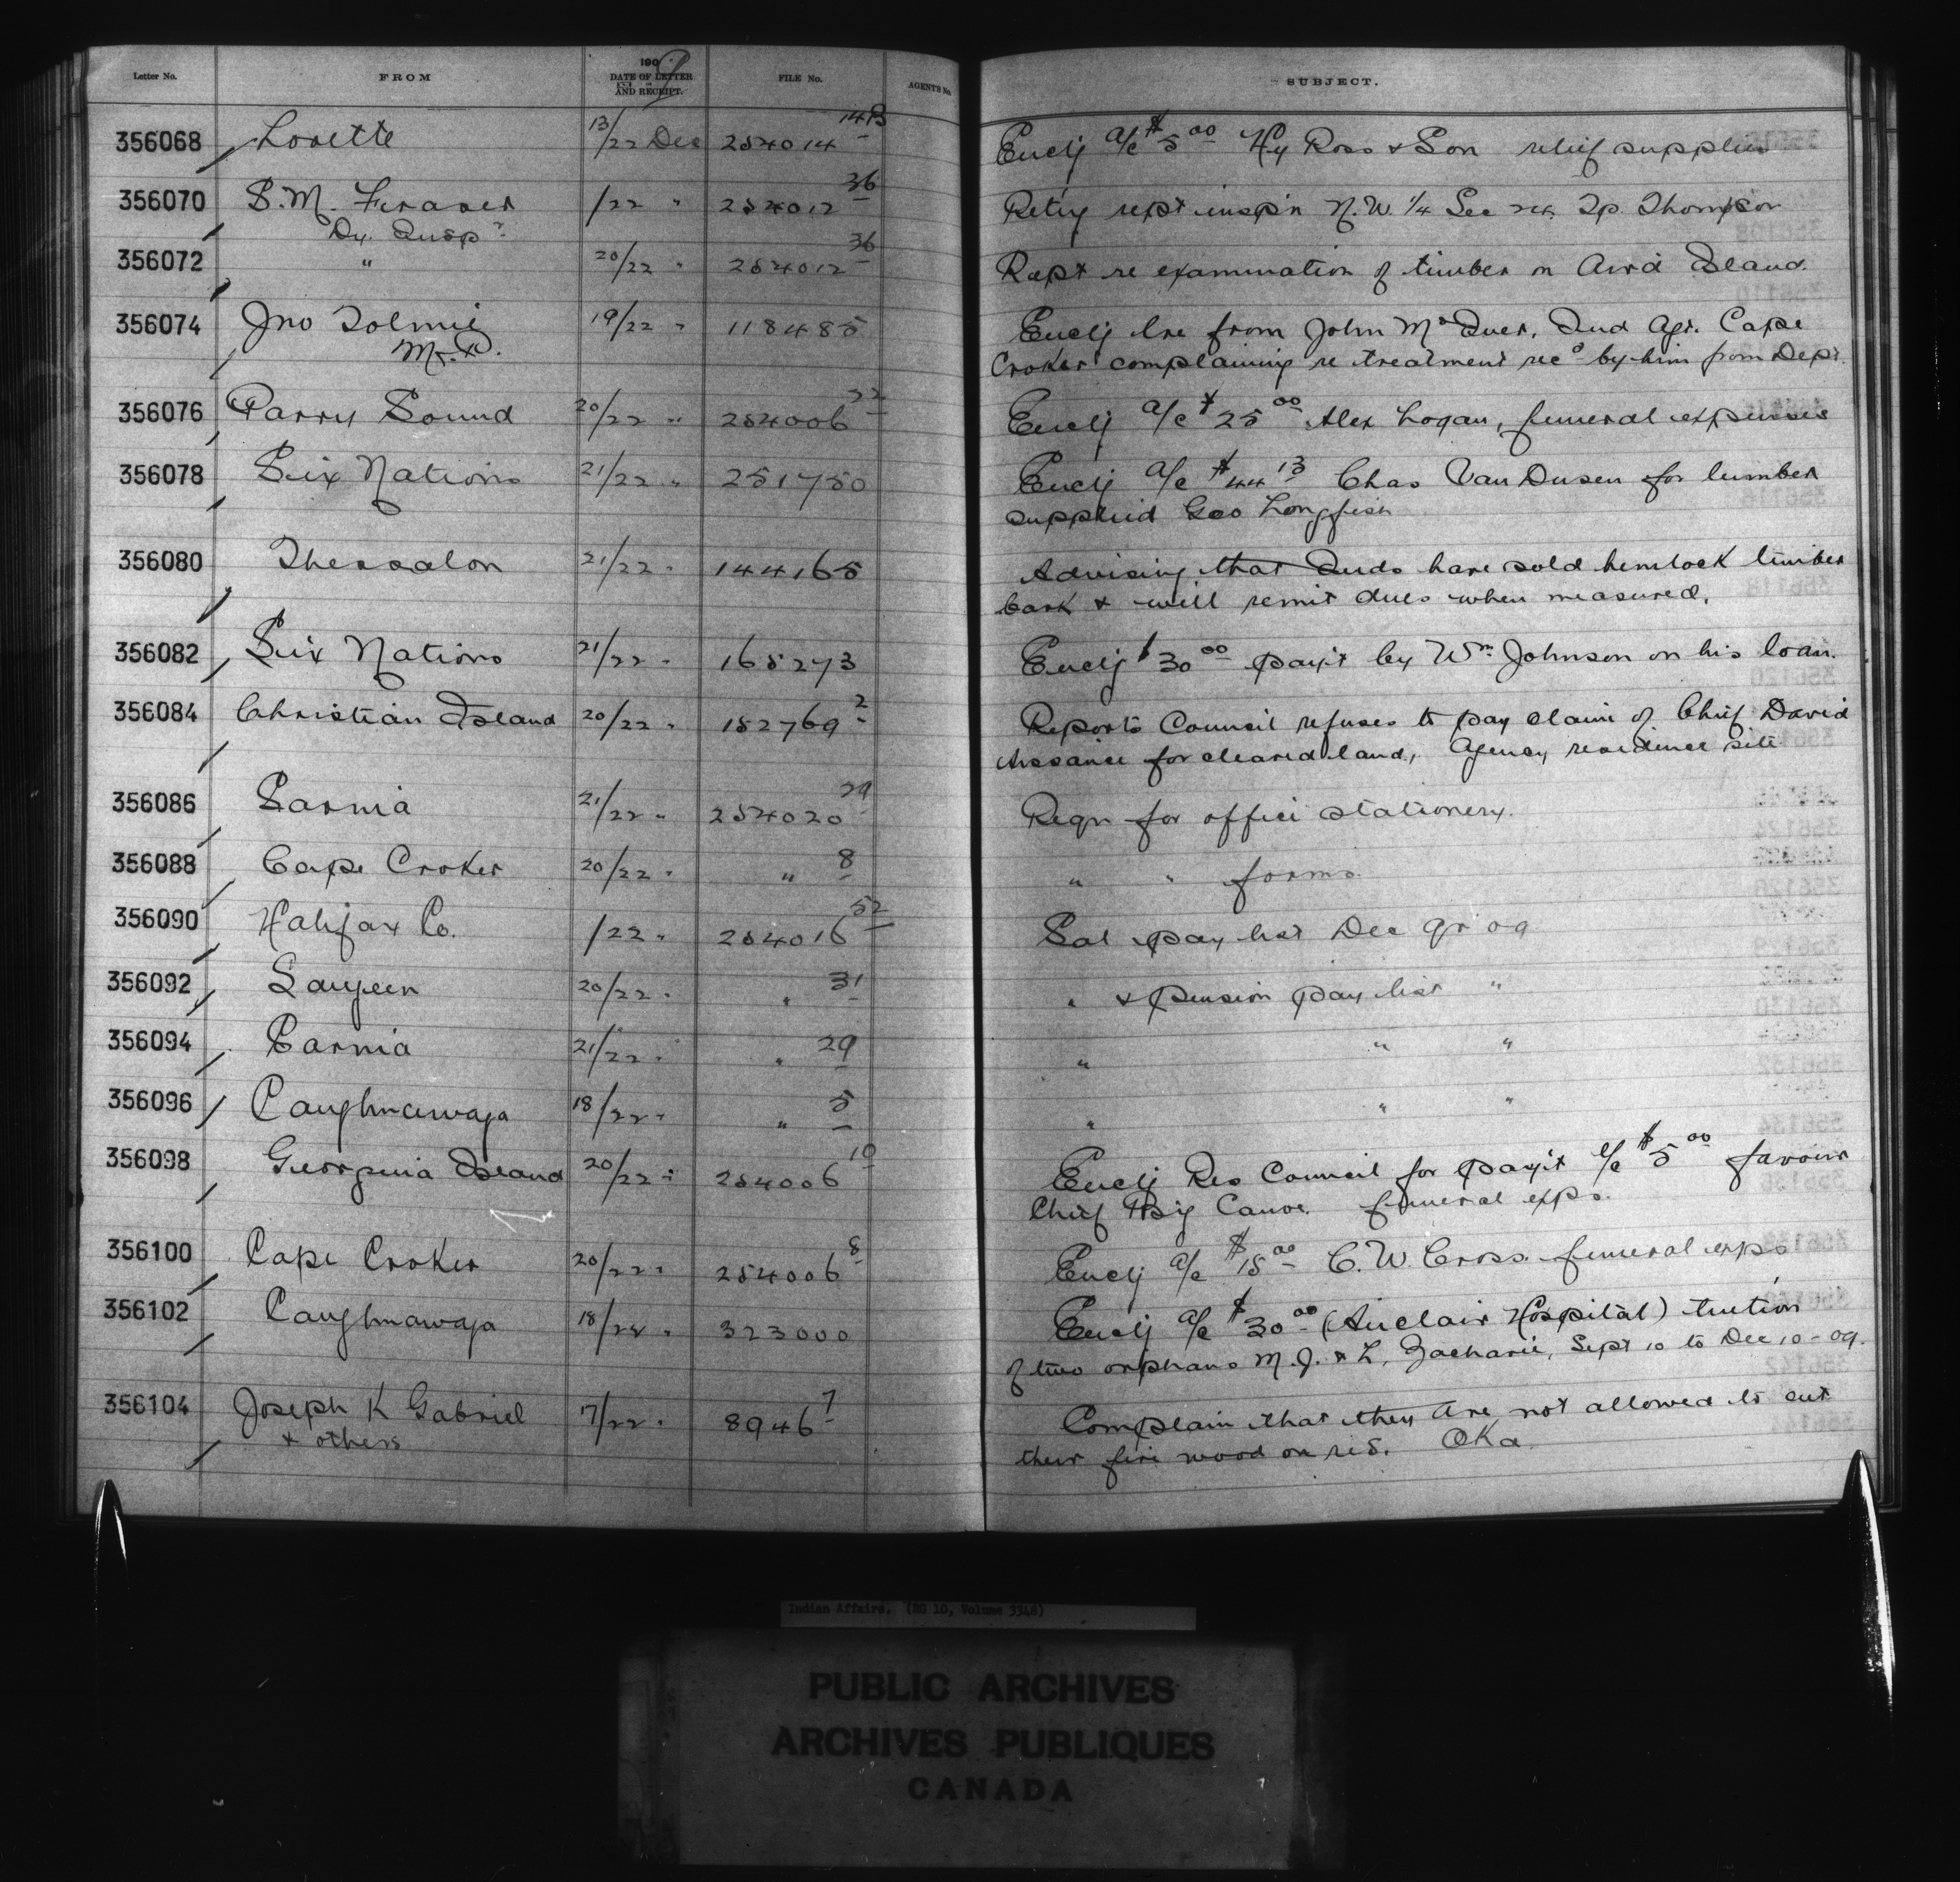 Letter No. FROM 1909 DATE OF LETTER AND RECEIPT. FILE No. AGENT'S No. SUBJECT.
356068 Lorette 13/22 Dec 254014 Enclg a/c $5 00 Hy Ross & Son relief supplies
356070 S. M. Fraser /22 " 254012 36 Retg rept inspn N.W. 1/4 Sec Tp. Thompson
Dy. Insp r
356072 " 20/22 " 254012 36 Rept re examination of timber on Aird Island.
356074 Jno Tolmie 19/22 " 118485 Enclg lre from John McIver, Ind Agt. Cape
M.P. Croker complaining re treatment recd by him from Dept.
356076 Parry Sound 20/22 " 254006 22 Enclg a/c $25 00 Alex Logan, funeral expenses
356078 Six Nations 21/22 " 251750 Enclg a/c $44 13 Chas Van Dusen for lumber
supplied Geo Longfish
356080 Thessalon 21/22 " 144165 Advising that Inds have sold hemlock timber
bark & will remit dues when measured.
356082 Six Nations 21/22 " 165273 Enclg $30 00 payt by Wm. Johnson on his loan.
356084 Christian Island 20/22 " 152769 2 Reports Council refuses to pay claim of Chief David
Assance for cleared land, Agency residence site
356086 Sarnia 21/22 " 254020 29 Reqn for office stationery.
356088 Cape Croker 20/22 " " 8 " " forms
356090 Halifax Co. /22 " 254016 52 Sal pay list Dec qr 09
356092 Saugeen 20/22 " " 31 " & pension pay list "
356094 Sarnia 21/22 " " 29 " " "
356096 Caughnawaga 18/22 " " 5 " " "
356098 Georgina Island 20/22 " 254006 10 Enclg Res Council for payt a/c $5 00 favour
Chief Big Canoe. funeral exps.
356100 Cape Croker 20/22 " 254006 8 Enclg a/c $15 00 C. W. Cross funeral exps
356102 Caughnawaga 18/22 " 323000 Enclg a/c $30 00 ( Hospital) tuition
of two orphans M. J. & L. Zacharie, Sept 10 to Dec 10 - 09.
356104 Joseph K Gabriel 17/22 " 8946 7 Complain that they are not allowed to cut
& others their fire wood on res. Oka
Indian Affairs. (RG 10, Volume 3348)
PUBLIC ARCHIVES
ARCHIVES PUBLIQUES
CANADA